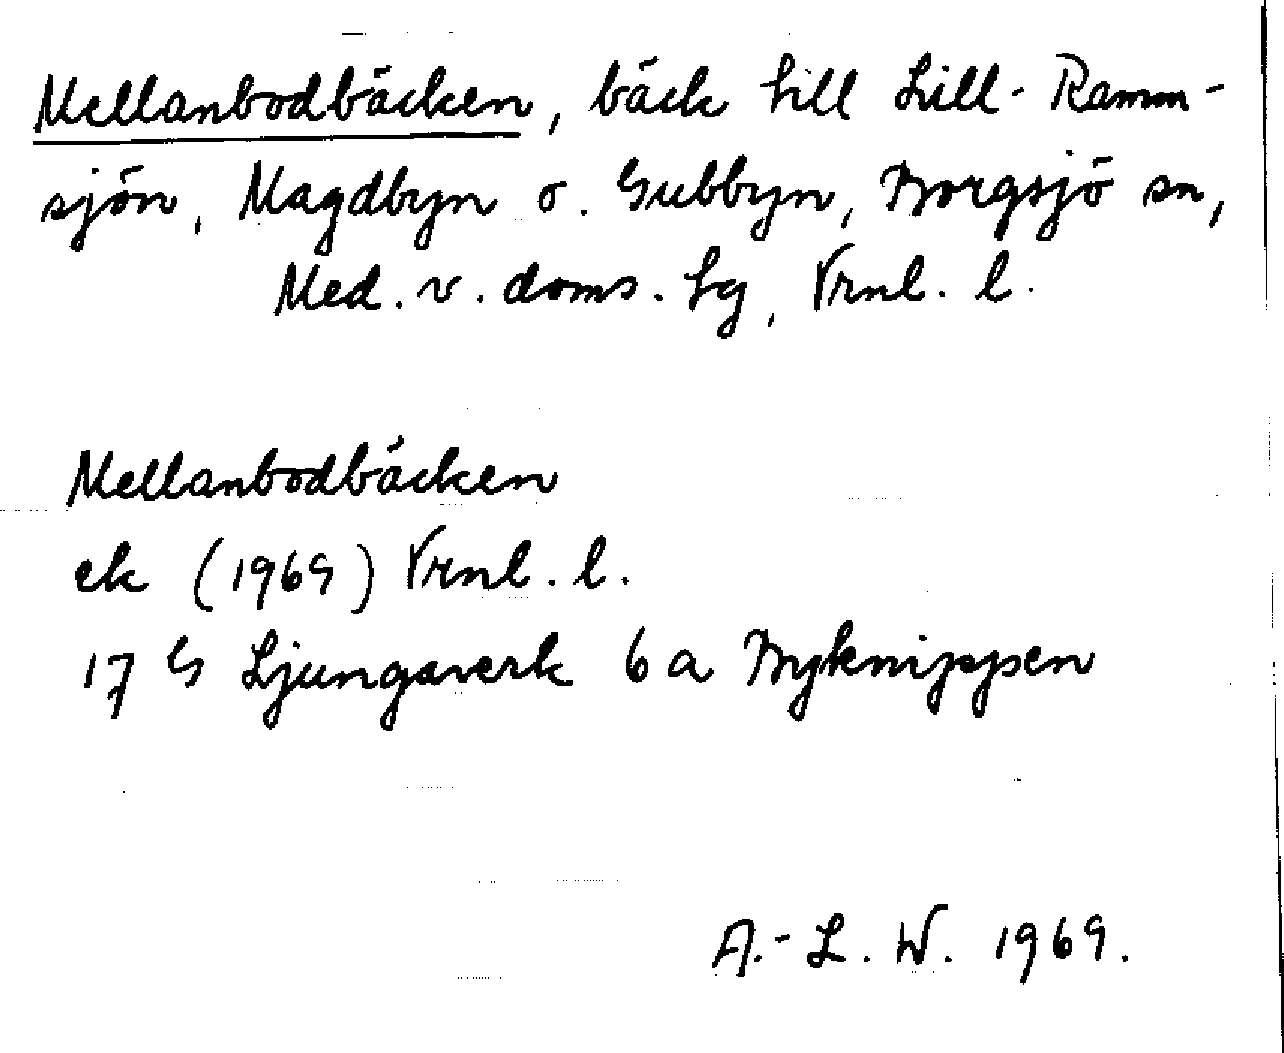 Mellanbodbäcken, bäck till Lill-Ramm-
sjön, Magdbyn o. Gubbyn, Borgsjö sn,
Med. v. doms. tg, Vrnl. l.
Mellanbodbäcken
ek (1969) Vrnl. l.
17 G Ljungaverk 6 a Byknippen
A.-L. W. 1969.